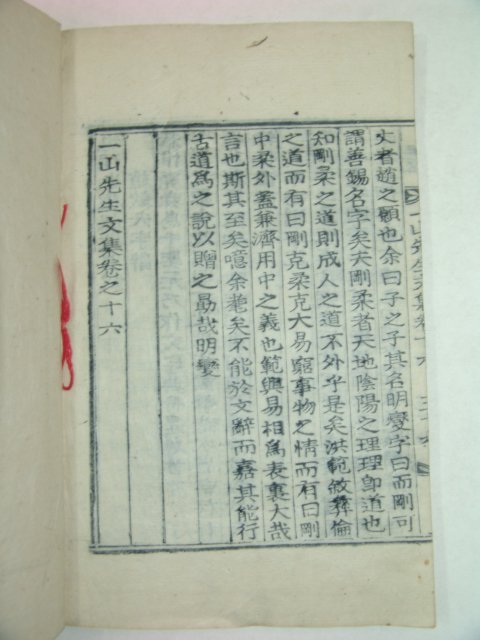 丈者遒之願也余曰子之子其名明燮字曰而剛可
謂善錫名字矣夫剛柔者天地陰陽之理理卽道也
知剛柔之道則成人之道不外乎是矣洪範敘彛倫
之道而有曰剛克柔克大易窮事物之情而有曰剛
中柔外蓋兼濟用中之義也範與易相爲表裏大哉
言也斯其至矣噫余耄矣不能於文辭而嘉其能行
古道爲之說以贈之勗哉明燮
一山先生文集卷之十六